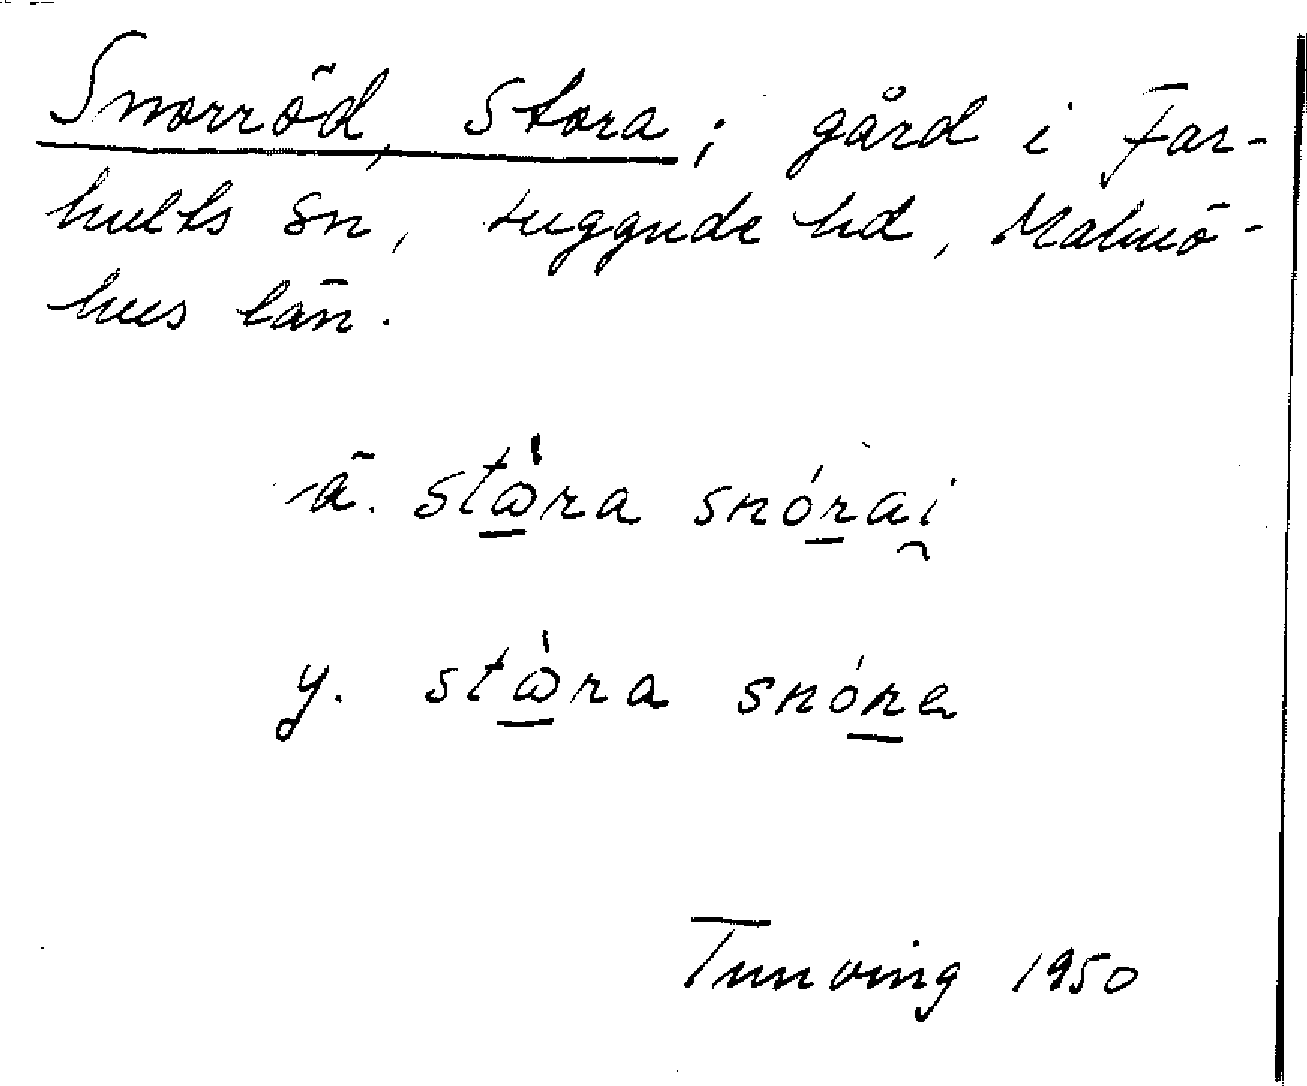 Snorröd, Stora; gård i Far-
hults sn, Luggude hd, Malmö-
hus län.
ä. stὼra snórai̯
y. stὼra snóra
Tunving 1950